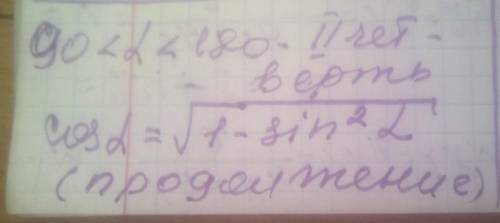 90 < α < 180 - II чет -
- верть
cos α = √1 - sin² α
(продолжение)